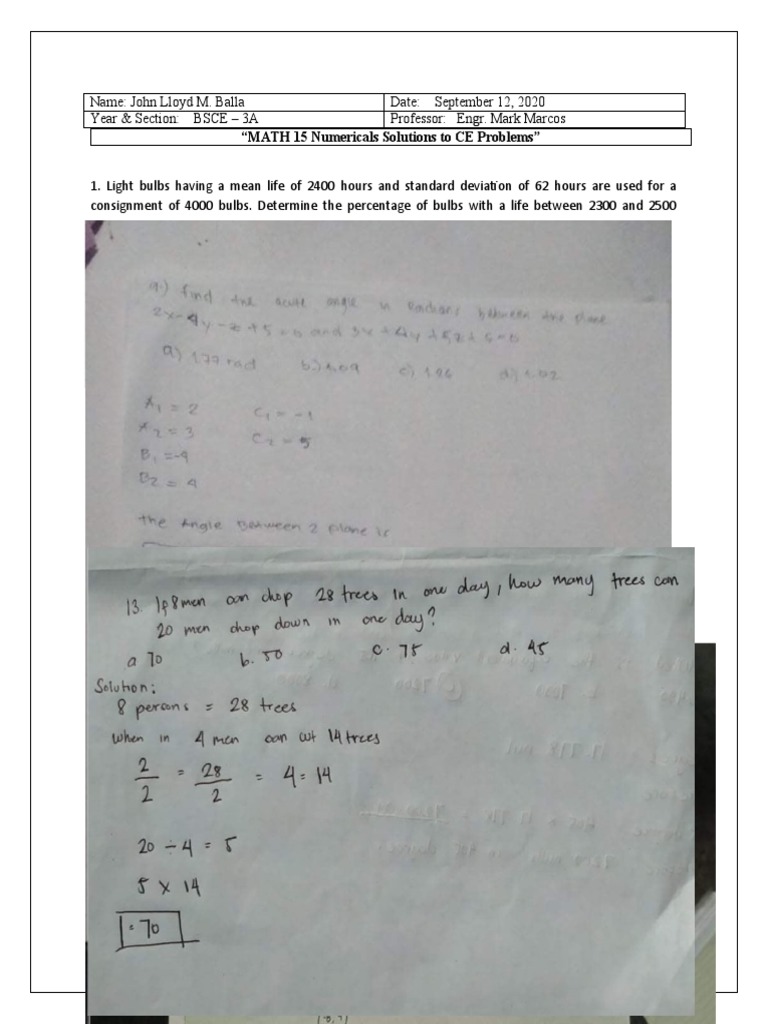 Name: John Lloyd M. Balla Date: September 12, 2020
Year & Section: BSCE – 3A Professor: Engr. Mark Marcos
“MATH 15 Numericals Solutions to CE Problems”
1. Light bulbs having a mean life of 2400 hours and standard deviation of 62 hours are used for a
consignment of 4000 bulbs. Determine the percentage of bulbs with a life between 2300 and 2500
9.) find the acute angle in Radians between the plane
2x-4y-z+5=0 and 3x+4y+5z+5=0
a) 1.77 rad b.) 1.09 c) 1.86 d) 1.02
A1 = 2 C1 = -1
A2 = 3 C2 = 5
B1 = -4
B2 = 4
the Angle Between 2 plane is
13. If 8 men can chop 28 trees in one day, how many trees can
20 men chop down in one day?
a 70 b. 50 c. 75 d. 45
Solution:
8 persons = 28 trees
When in 4 men can cut 14 trees
2/2 = 28/2 = 4 = 14
20 ÷ 4 = 5
5 x 14
= 70